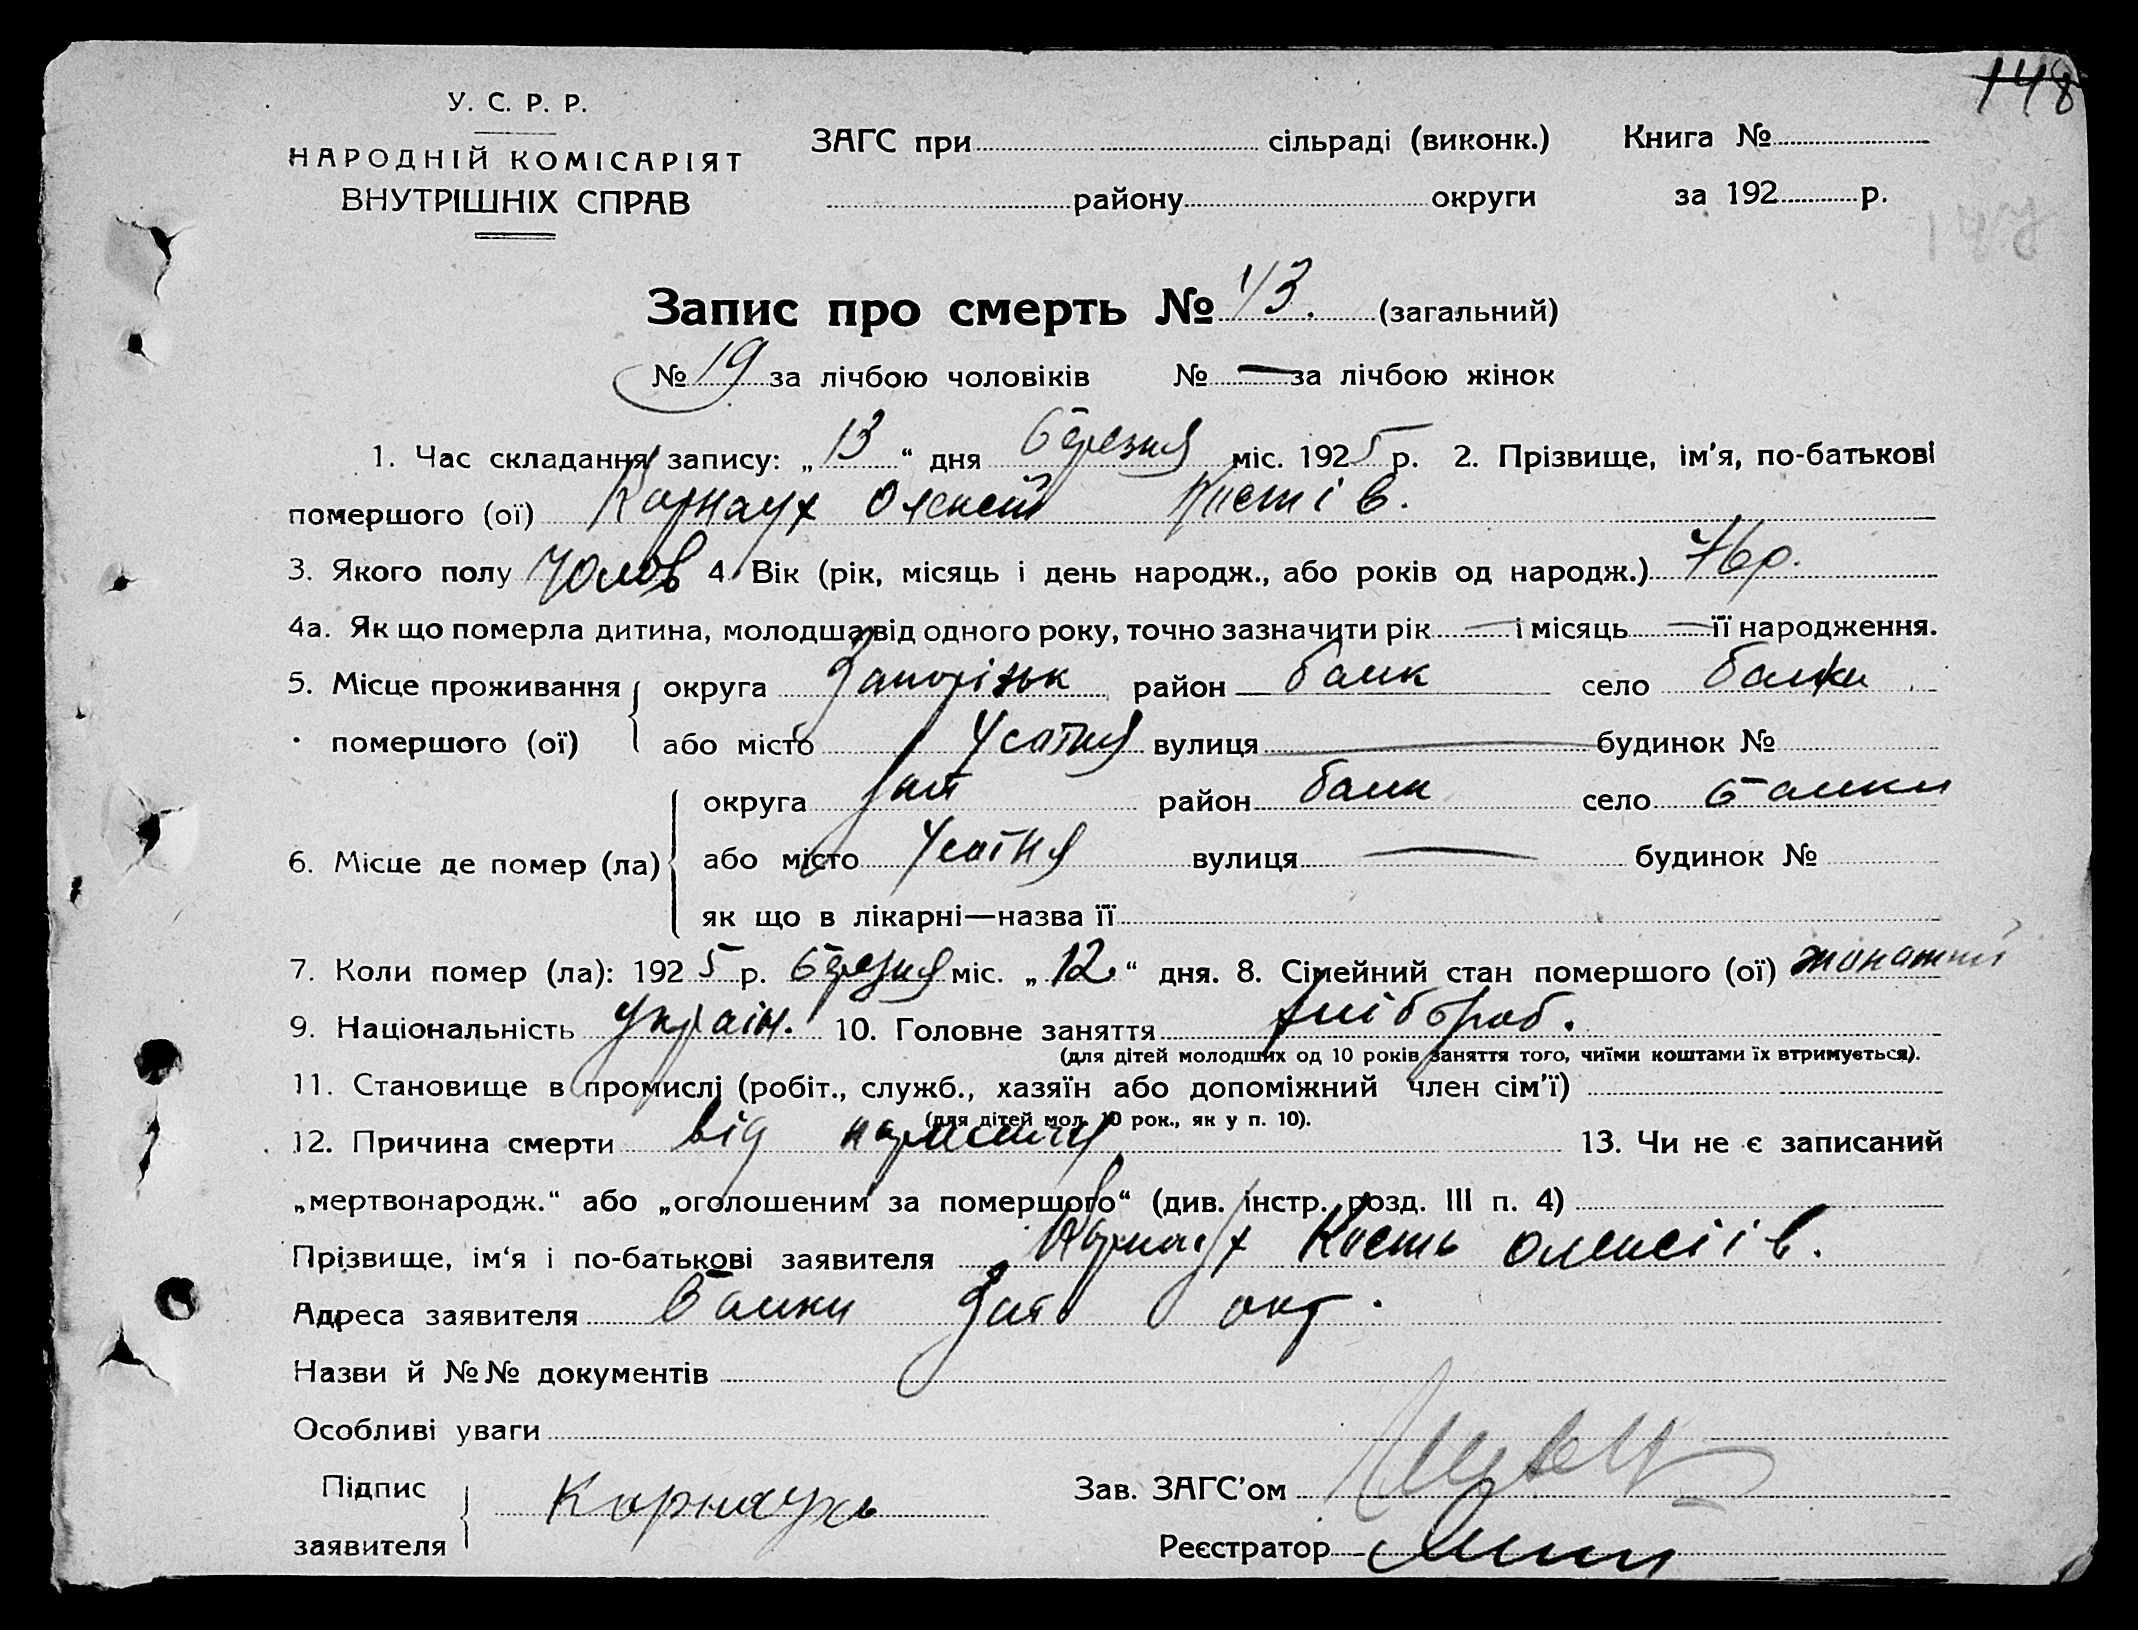 148
У. С. Р. Р.
НАРОДНІЙ КОМІСАРІЯТ
ВНУТРІШНІХ СПРАВ
ЗАГС при сільраді (виконк.) Книга №
району округи за 192 р.
147
Запис про смерть № 43. (загальний)
№ 19 за лічбою чоловіків № — за лічбою жінок
1. Час складання запису: „13“ дня березня міс. 1925 р. 2. Прізвище, ім'я, по-батькові
помершого (ої) Карнаух Олексій Костів.
3. Якого полу Чолов 4. Вік (рік, місяць і день народж., або років од народж.) 76 р.
4а. Як що померла дитина, молодша від одного року, точно зазначити рік — і місяць — її народження.
5. Місце проживання округа Запорізьк район балк село балки
помершого (ої) або місто вулиця — будинок №
округа Зап район балк село балки
6. Місце де помер (ла) або місто вулиця — будинок №
як що в лікарні—назва її
7. Коли помер (ла): 1925 р. березня міс. „12“ дня. 8. Сімейний стан помершого (ої) жонатий
9. Національність україн. 10. Головне заняття хліброб.
(для дітей молодших од 10 років заняття того, чиїми коштами їх втримується).
11. Становище в промислі (робіт., служб., хазяїн або допоміжний член сім'ї)
(для дітей мол. 10 рок., як у п. 10).
12. Причина смерти від 13. Чи не є записаний
„мертвонародж.“ або „оголошеним за помершого“ (див. інстр. розд. III п. 4)
Прізвище, ім'я і по-батькові заявителя Карнаух Кость Олексіїв.
Адреса заявителя Балки Зап окр.
Назви й №№ документів
Особливі уваги
Підпис
заявителя Карнаухъ
Зав. ЗАГС'ом
Реєстратор